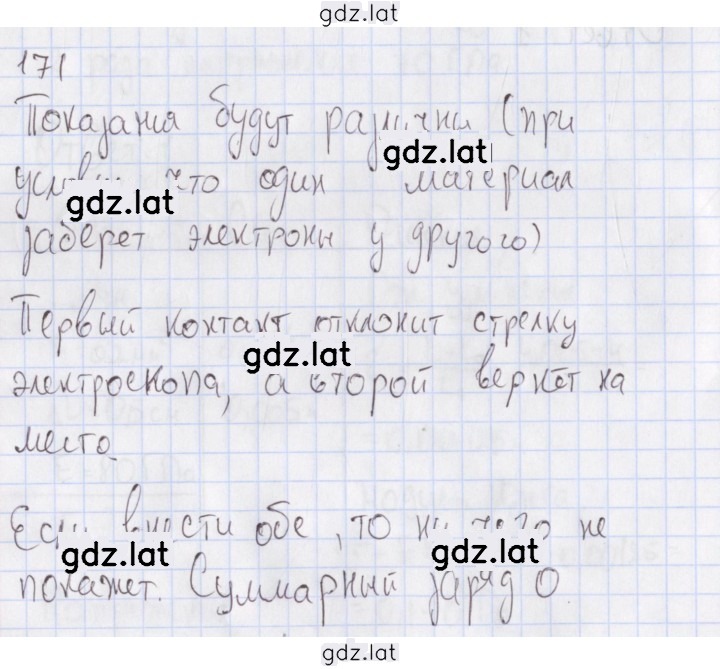 gdz.lat
171
Показания будут различны (при
gdz.lat
условии что один материал
gdz.lat
заберет электроны у другого)
Первый контакт отклонит стрелку
gdz.lat
электроскопа, а второй вернёт на
место
Если внести обе, то ничего не
gdz.lat gdz.lat
покажет. Суммарный заряд 0
gdz.lat